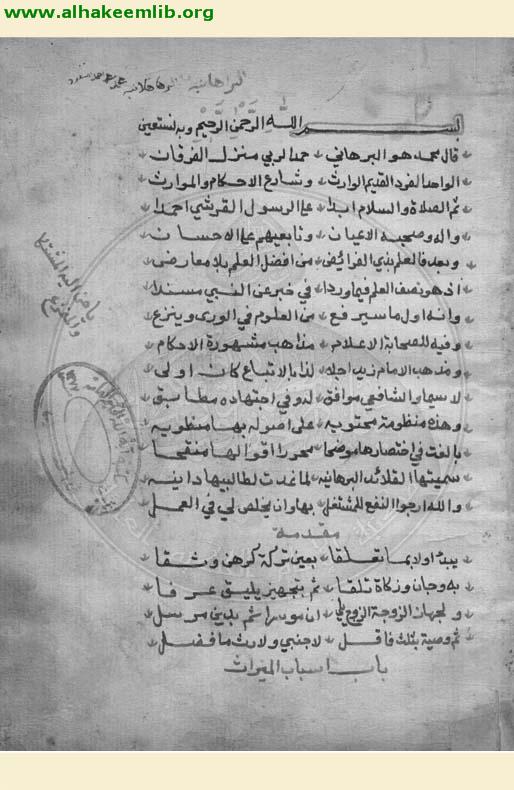 www.alhakeemlib.org
البرهانيه
بســم الله الرَّحْمٰنِ الرَّحيمِ وبه نستعين
قال محمد هو البرهاني حمدا لربي منزل الفرقان
الواحد الفرد القديم الوارث وشارع الاحكام والموارث
ثم الصلاة والسلام ابدا على الرسول القرشي احمدا
واله وصحبه الاعيان وتابعيهم على الاحسان
وبعد فالعلم بذي الفرائض من افضل العلم بلا معارض
اذ هو نصف العلم فيما وردا في خبر عن النبي مسندا
وانه اول ما سيرفع من العلوم في الورى وينزع
وفيه للصحابة الاعلام مذاهب مشهورة الاحكام
ومذهب الامام زيد اجلا لذا بالاتباع كان اولى
لا سيما والشافعي موافق له وفي اجتهاده مطابق
وهذه منظومة محتويه على اصوله بها منطويه
بالغت في اختصارها موضحا محررا اقوالها منقحا
سميتها القلائد البرهانيه لما غدت لطالبيها دانيه
والله ارجو النفع للمشتغل بها وان يخلص لي في العمل
مقدمة
يبدأ اولا بما تعلقا بعين تركة كرهن وثقا
به وجان وزكاة تلفا ثم بتجهيز يليق عرفا
ولجهاز الزوجة الزوج يلي ان موسرا ثم بدين مرسل
ثم وصية بثلث فاقل لاجنبي ولارث ما فضل
باب اسباب الميراث